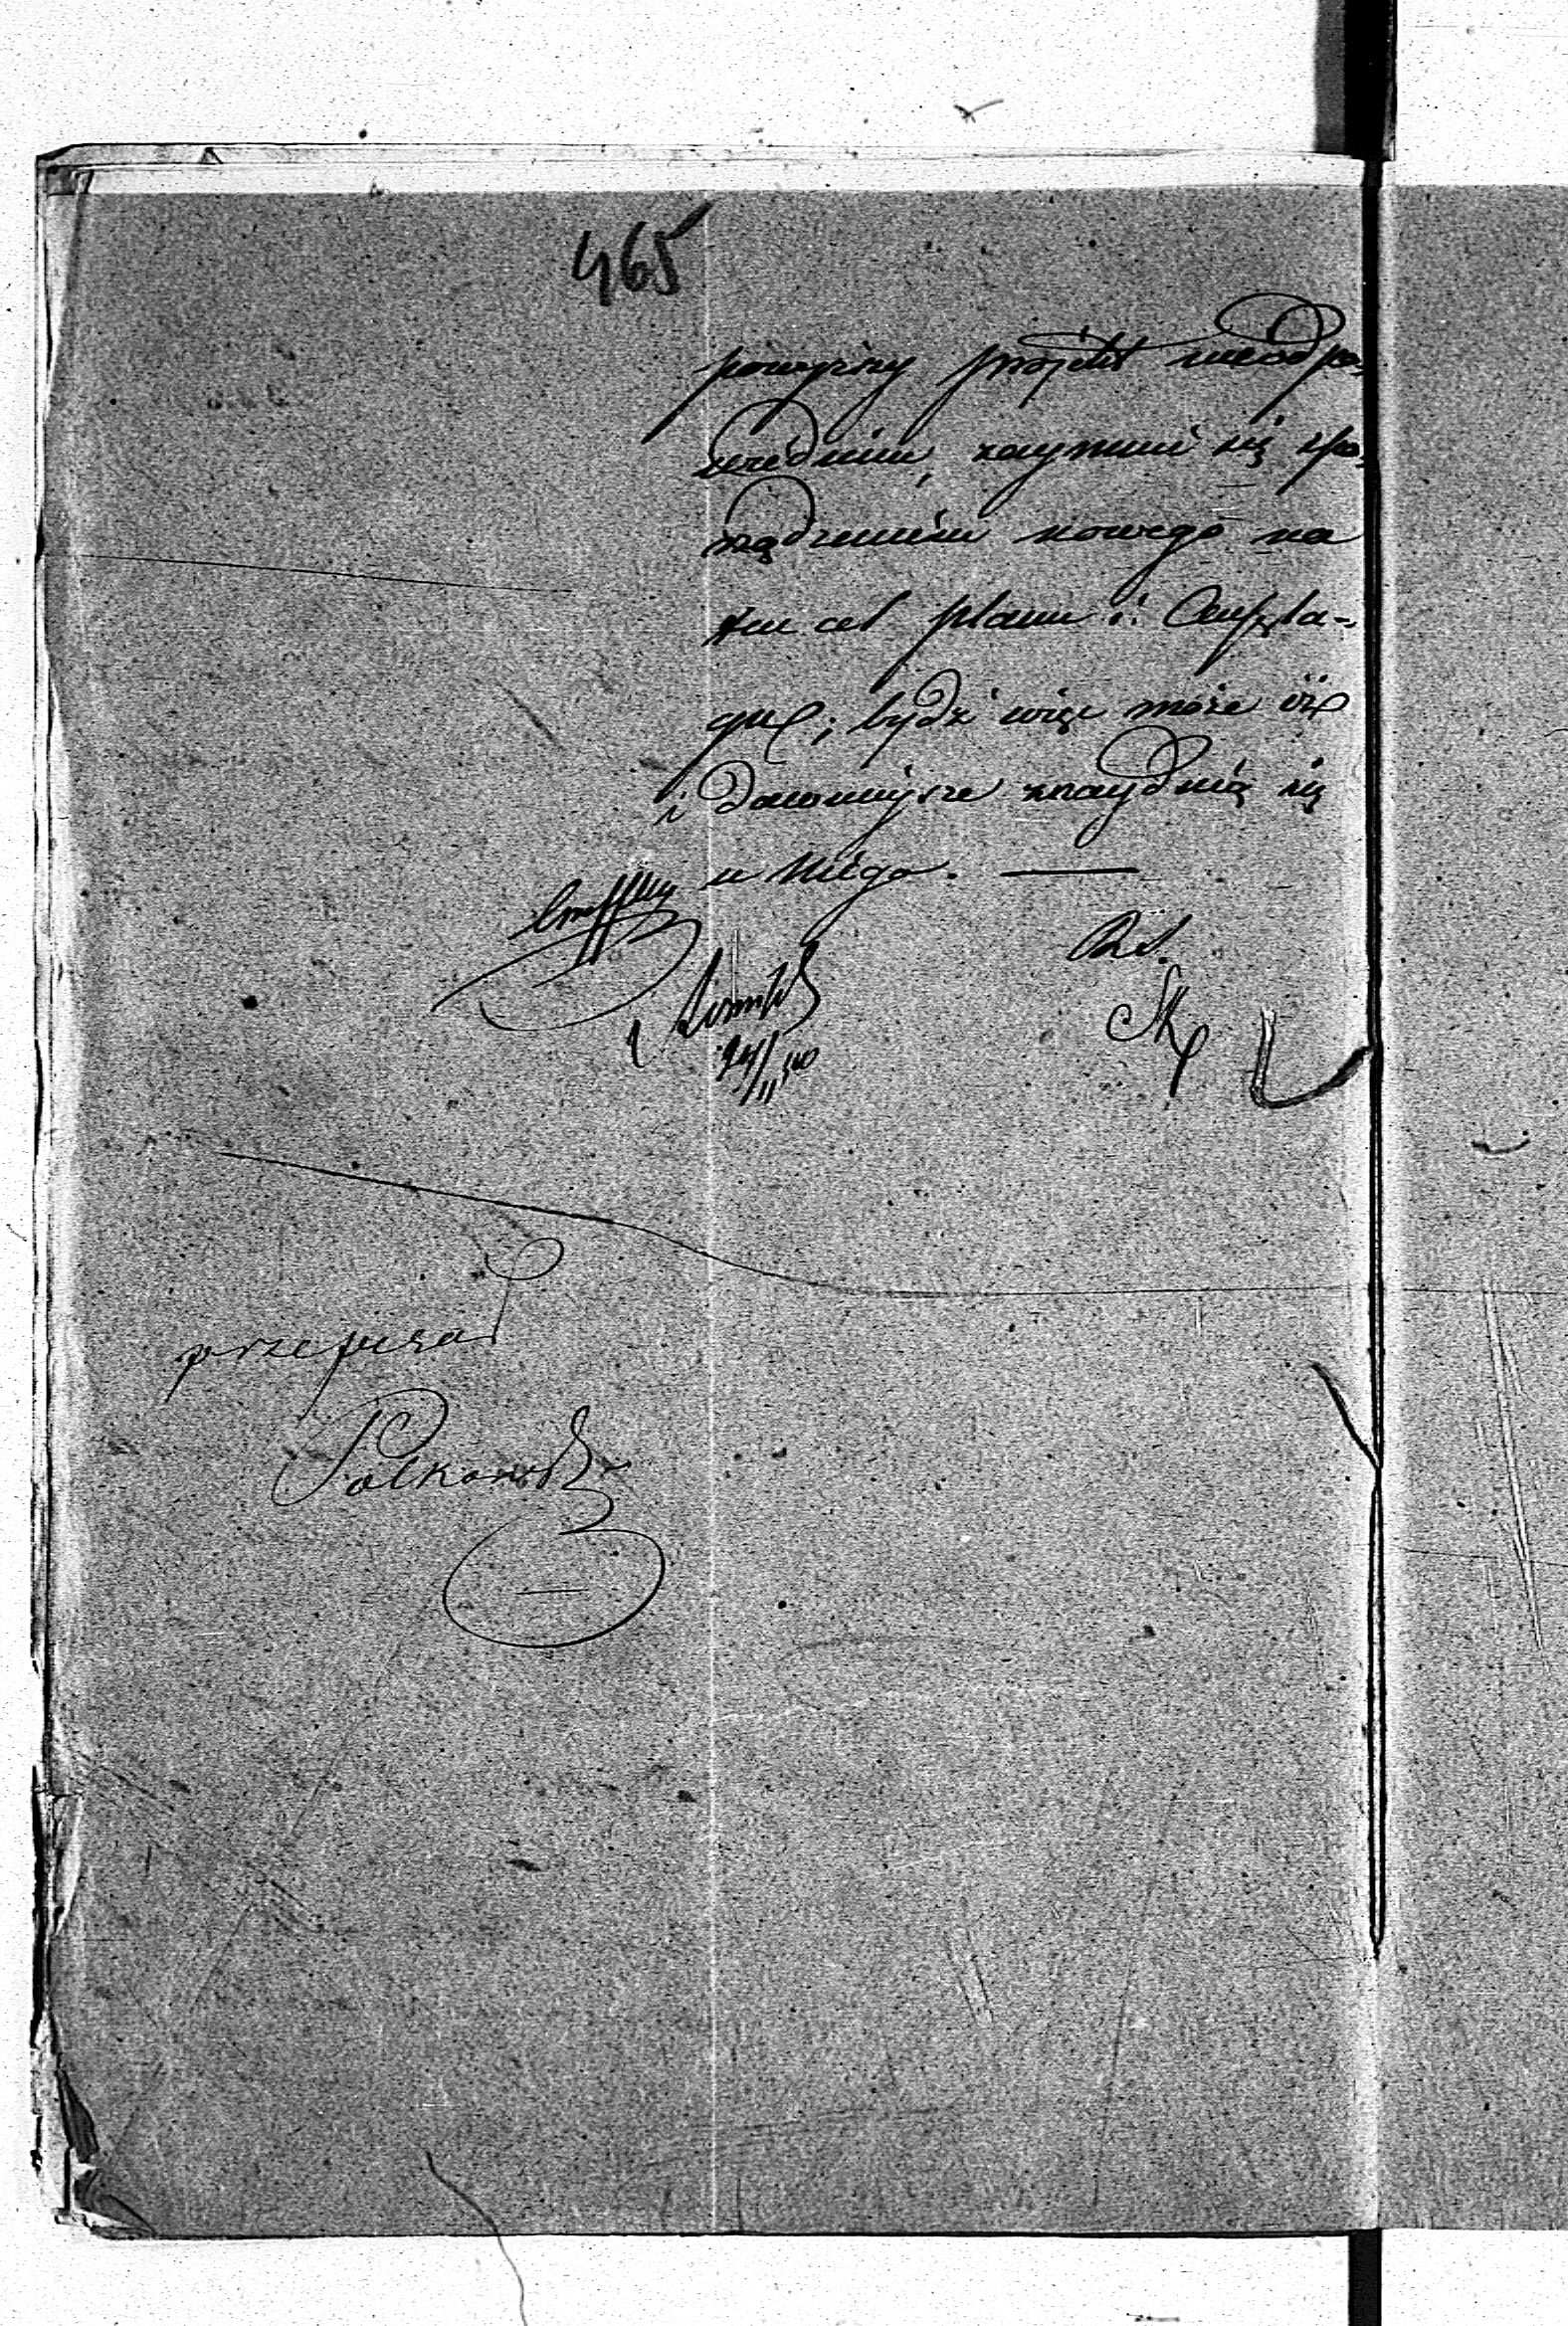 465
powyższy projekt nieodpo-
wiednim, zaymuie się spo-
rządzeniem nowego na
ten cel planu i Anszla-
gu; bydź więc może iż
i dawniejsze znaydują się
u niego. —
24/11 50
przepisał
Polkowski